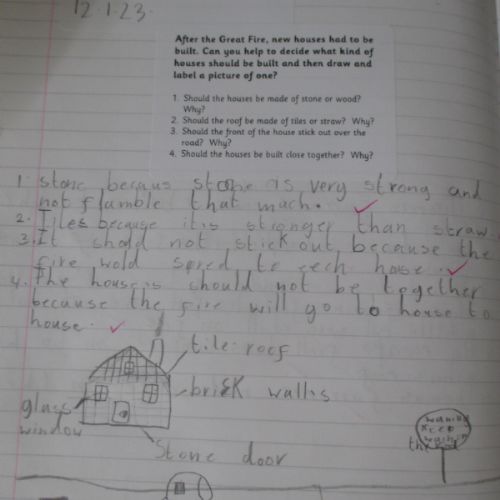 12.1.23.
After the Great Fire, new houses had to be
built. Can you help to decide what kind of
houses should be built and then draw and
label a picture of one?
1. Should the houses be made of stone or wood?
Why?
2. Should the roof be made of tiles or straw? Why?
3. Should the front of the house stick out over the
road? Why?
4. Should the houses be built close together? Why?
1 Stone becaus stone is very strong and
not flamble that mach.
2. Tiles because it is stronger than straw.
3. It shoud not stick out because the
fire wold spred to eech house.
4. The houses should not be together
because the fire will go to house to
house.
tile roof
brick walls
glass
window
Stone door
keep